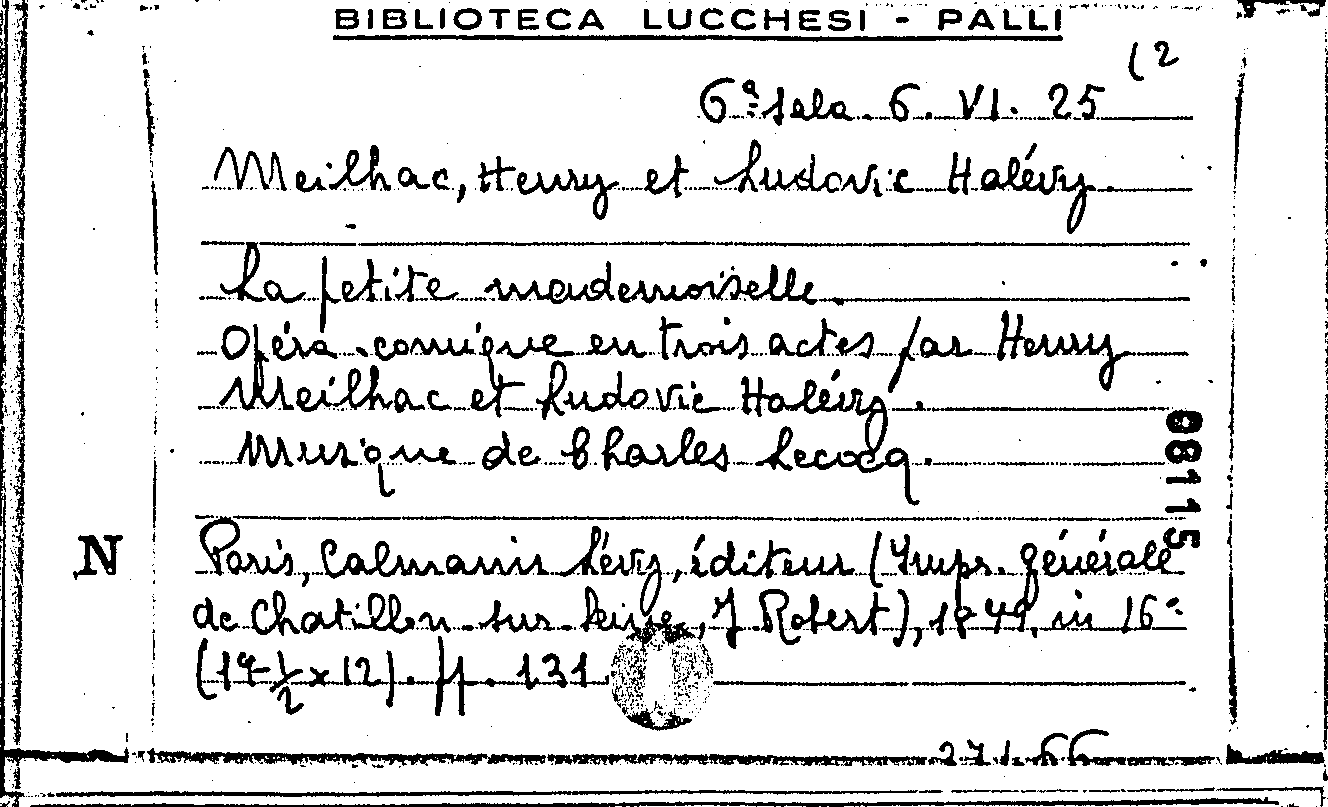 BIBLIOTECA LUCCHESI - PALLI
(2
6ª sala. 6. VI. 25
Meilhac, Henry et Ludovic Halévy.
La petite mademoiselle.
Opéra-comique en trois actes par Henry
Meilhac et Ludovic Halévy.
Musique de Charles Lecocq.
08115
N
Paris, Calmann Lévy, éditeur (Impr. générale
de Chatillon-sur-Seine, J. Robert), 1879, in 16°
(17 1/2 x 12). pp. 131